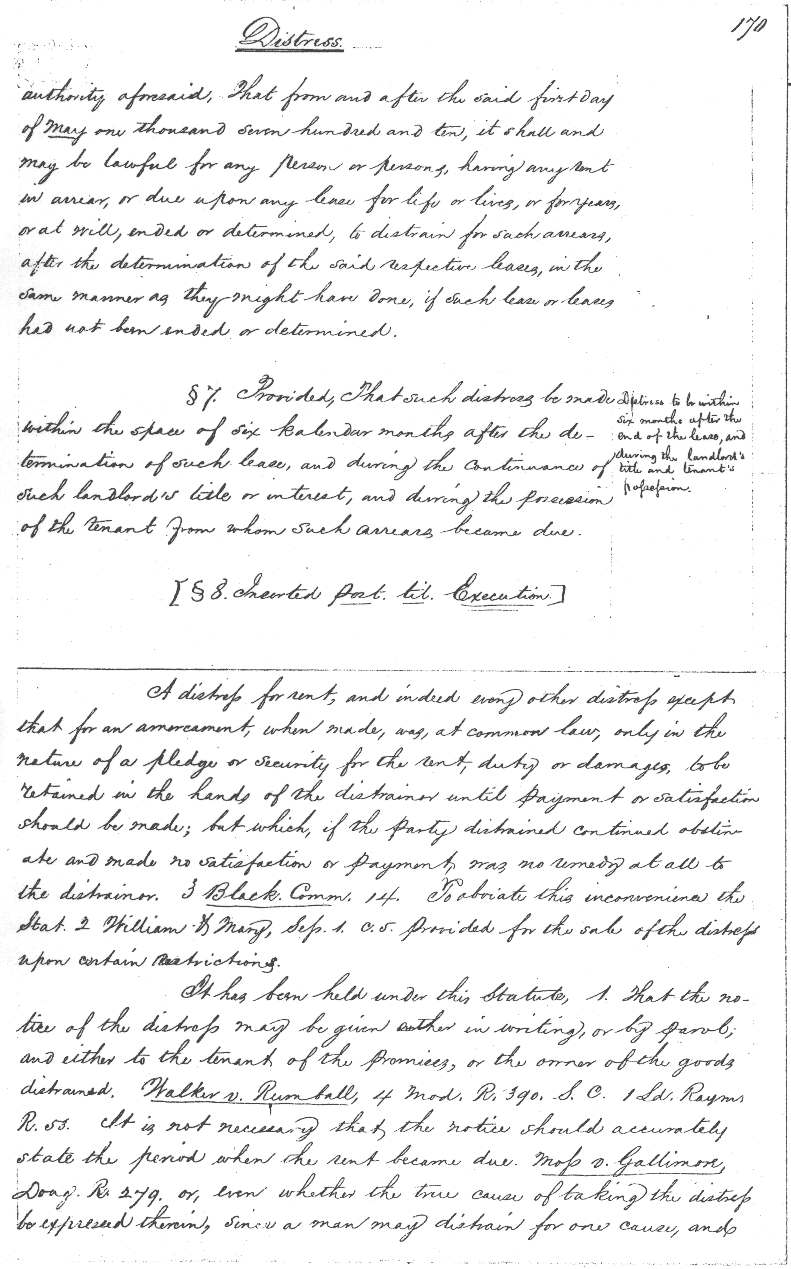 Distress.
170
authority aforesaid, That from and after the said first day
of May one thousand seven hundred and ten, it shall and
may be lawful for any person or persons, having any rent
in arrear, or due upon any lease for life or lives, or for years,
or at will, ended or determined, to distrain for such arrears,
after the determination of the said respective leases, in the
same manner as they might have done, if such lease or leases
had not been ended or determined.
§ 7. Provided, That such distress be made
within the space of six kalendar months after the de-
termination of such lease, and during the continuance of
such landlord's title or interest, and during the possession
of the tenant from whom such arrears became due.
Distress to be within
six months after the
end of the lease, and
during the landlord's
title and tenant's
possession.
[§ 8. Inserted post. tit. Execution.]
A distress for rent, and indeed every other distress except
that for an amercament, when made, was, at common law, only in the
nature of a pledge or security for the rent, duty or damages, to be
retained in the hands of the distrainor until payment or satisfaction
should be made; but which, if the party distrained continued obstin-
ate and made no satisfaction or payment, was no remedy at all to
the distrainor. 3 Black. Comm. 14. To obviate this inconvenience the
Stat. 2 William & Mary, Sess. 1. c. 5. provided for the sale of the distress
upon certain restrictions.
It has been held under this Statute, 1. That the no-
tice of the distress may be given either in writing, or by parol;
and either to the tenant of the premises, or the owner of the goods
distrained. Walker v. Rumball, 4 Mod. R. 390. S. C. 1 Ld. Raym.
R. 53. It is not necessary that the notice should accurately
state the period when the rent became due. Moss v. Gallimore,
Doug. R. 279. or, even whether the true cause of taking the distress
be expressed therein, since a man may distrain for one cause, and